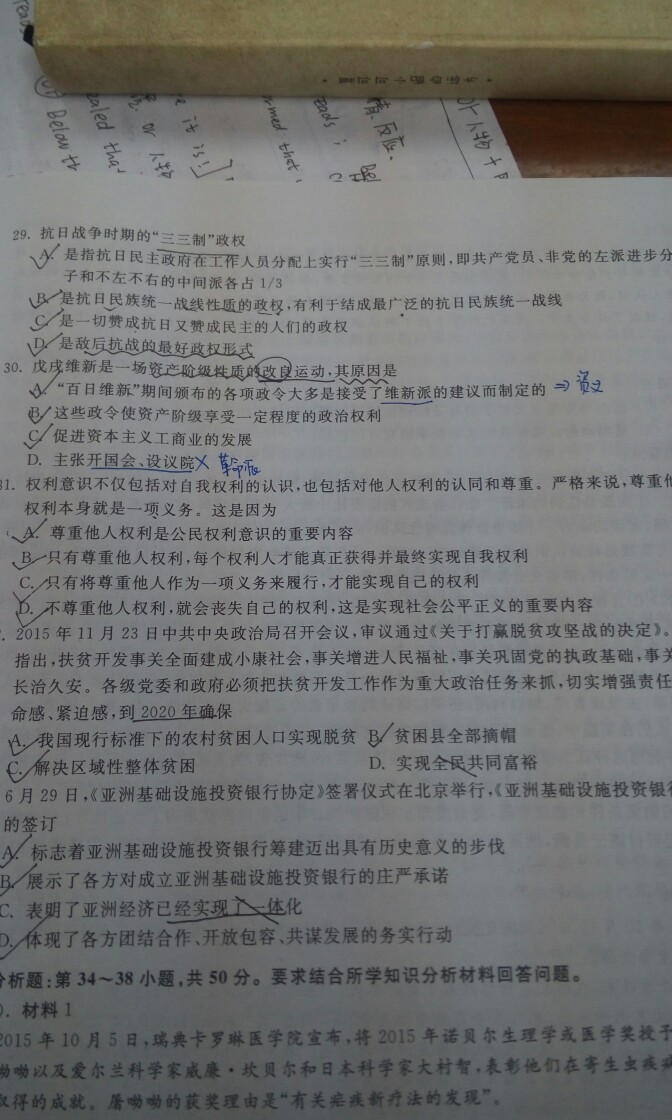 reads
Below th
ealed that
or 人物
e it is!]
ormed that
reads;
情.反应.
Bel
人物 +
29. 抗日战争时期的“三三制”政权
A. 是指抗日民主政府在工作人员分配上实行“三三制”原则,即共产党员、非党的左派进步分
子和不左不右的中间派各占 1/3
B. 是抗日民族统一战线性质的政权,有利于结成最广泛的抗日民族统一战线
C. 是一切赞成抗日又赞成民主的人们的政权
D. 是敌后抗战的最好政权形式
30. 戊戌维新是一场资产阶级性质的改良运动,其原因是
A. “百日维新”期间颁布的各项政令大多是接受了维新派的建议而制定的 ⇒ 资义
B. 这些政令使资产阶级享受一定程度的政治权利
C. 促进资本主义工商业的发展
D. 主张开国会、设议院 × 革命派
31. 权利意识不仅包括对自我权利的认识,也包括对他人权利的认同和尊重。严格来说,尊重他
权利本身就是一项义务。这是因为
A. 尊重他人权利是公民权利意识的重要内容
B. 只有尊重他人权利,每个权利人才能真正获得并最终实现自我权利
C. 只有将尊重他人作为一项义务来履行,才能实现自己的权利
D. 不尊重他人权利,就会丧失自己的权利,这是实现社会公平正义的重要内容
. 2015 年 11 月 23 日中共中央政治局召开会议,审议通过《关于打赢脱贫攻坚战的决定》。
指出,扶贫开发事关全面建成小康社会,事关增进人民福祉,事关巩固党的执政基础,事关
长治久安。各级党委和政府必须把扶贫开发工作作为重大政治任务来抓,切实增强责任
命感、紧迫感,到 2020 年确保
A. 我国现行标准下的农村贫困人口实现脱贫 B. 贫困县全部摘帽
C. 解决区域性整体贫困 D. 实现全民共同富裕
6 月 29 日,《亚洲基础设施投资银行协定》签署仪式在北京举行,《亚洲基础设施投资银行
的签订
A. 标志着亚洲基础设施投资银行筹建迈出具有历史意义的步伐
B. 展示了各方对成立亚洲基础设施投资银行的庄严承诺
C. 表明了亚洲经济已经实现了一体化
D. 体现了各方团结合作、开放包容、共谋发展的务实行动
分析题:第 34~38 小题,共 50 分。要求结合所学知识分析材料回答问题。
. 材料 1
2015 年 10 月 5 日,瑞典卡罗琳医学院宣布,将 2015 年诺贝尔生理学或医学奖授予
呦呦以及爱尔兰科学家威廉·坎贝尔和日本科学家大村智,表彰他们在寄生虫疾病
取得的成就。屠呦呦的获奖理由是“有关疟疾新疗法的发现”。